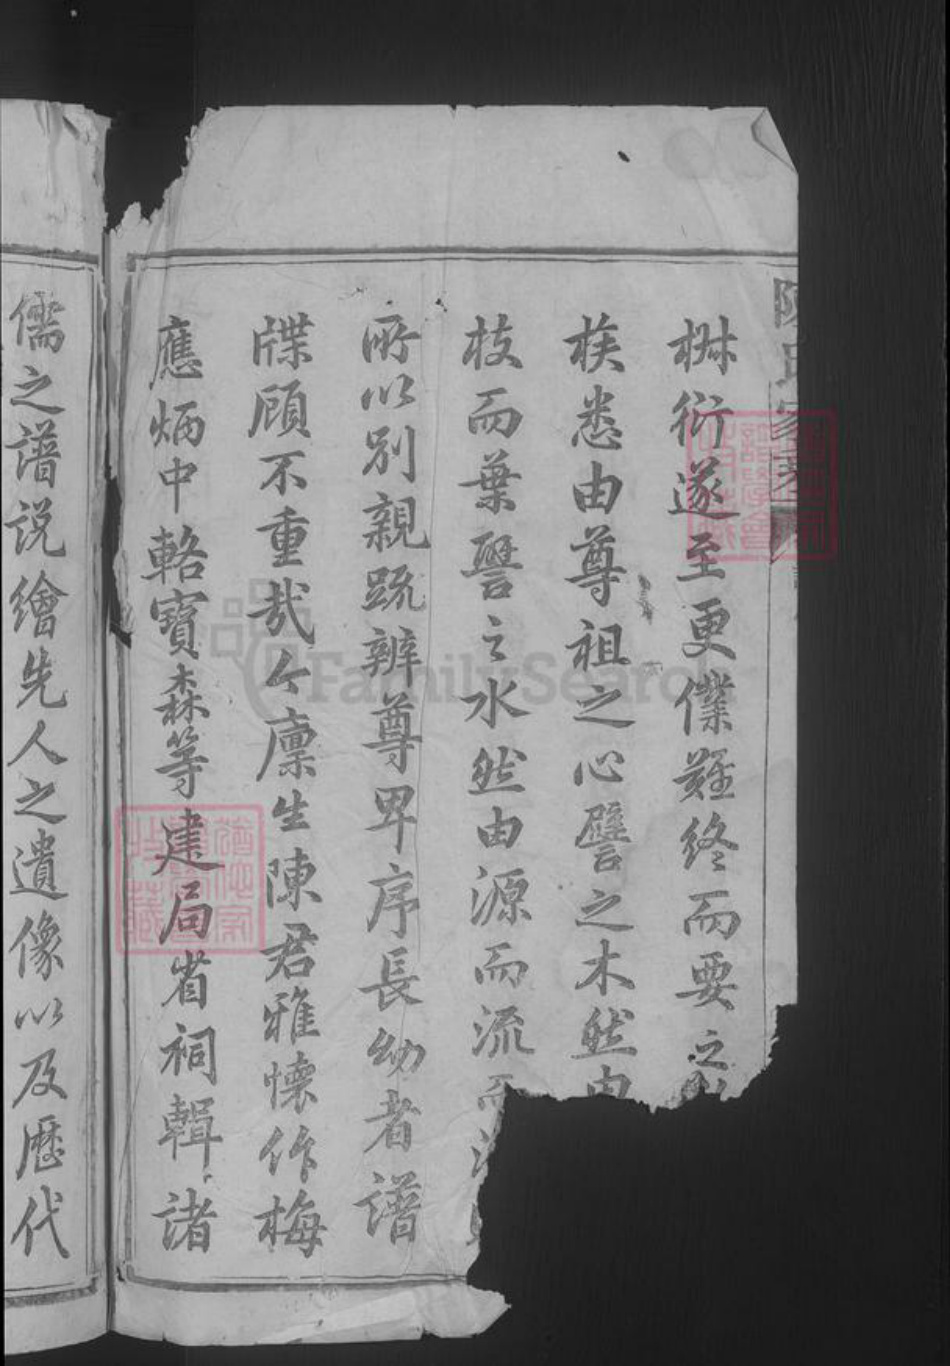 陳氏家
椒衍遂至更僕難終而要之
族悉由尊祖之心譬之木然由
枝而葉譬之水然由源而流而
所以別親疏辨尊卑序長幼者譜
牒顧不重哉今廩生陳君雅懷作梅
應炳中輅寶森等建局省祠輯諸
儒之譜說繪先人之遺像以及歷代
FamilySearch